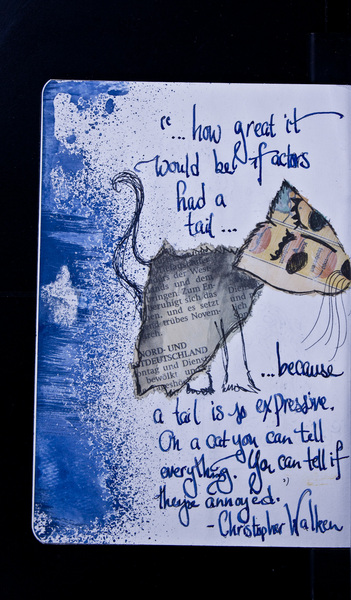 "... how great it
would be if actors
had a
tail ...
der West-
und den
ringen. Zum En
ruhigt sich das
en, und es setzt
trübes Novem-
NORD- UND
TDEUTSCHLAND
ontag und Diens
bewölkt
... because
a tail is so expressive.
On a cat you can tell
everything. You can tell if
they're annoyed."
- Christopher Walken